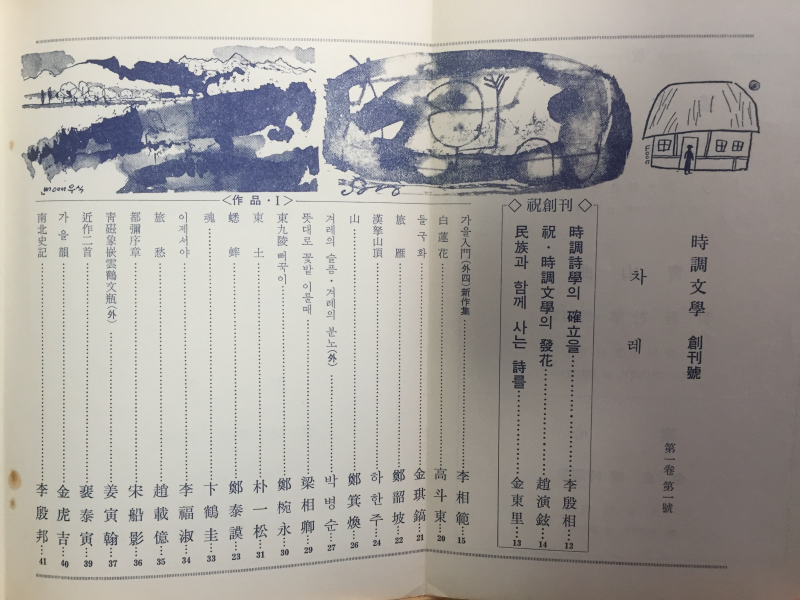 時調文學 創刊號
차례
第一卷 第一號
◇祝創刊◇
時調詩學의 確立을 李殷相 12
祝·時調文學의 發花 趙演鉉 14
民族과 함께 사는 詩를 金東里 13
<作品·Ⅰ>
가을入門(外四)新作集 李相範 15
白蓮花 高斗東 20
들국화 金琪鎬 21
旅雁 鄭韶坡 22
漢拏山頂 하한주 24
山 鄭箕煥 26
겨레의 슬픔·겨레의 분노(外) 박병순 27
뜻대로 꽃밭 이룰때 梁相卿 29
東九陵 뻐꾹이 鄭椀永 30
東土 朴一松 31
蟋蟀 鄭泰謨 23
魂 卞鶴圭 33
이제서야 李福淑 34
旅愁 趙載億 35
都彌序章 宋船影 36
靑磁象嵌雲鶴文瓶(外) 姜寅翰 37
近作二首 裵泰寅 39
가을韻 金虎吉 40
南北史記 李殷邦 41